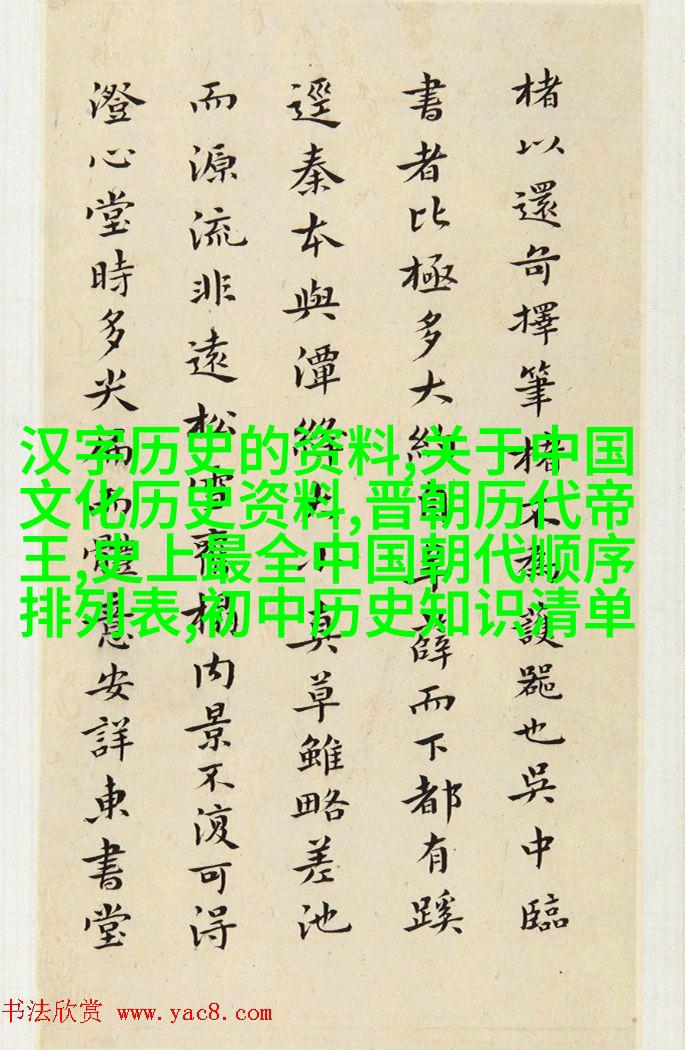 楮以還奇擇筆楮不為也吳中臨
書者比極多大約自薛而下都有蹊
逕秦本與潭絳真草雖略差池
而源流非遠松雪齋内景不復可得
澄心堂時多尖體意安詳東書堂
汉字历史的资料,关于中国
文化历史资料,晋朝历代帝
王,史上最全中国朝代顺序
排列表,初中历史知识清单
书法欣赏 www.yac8.com